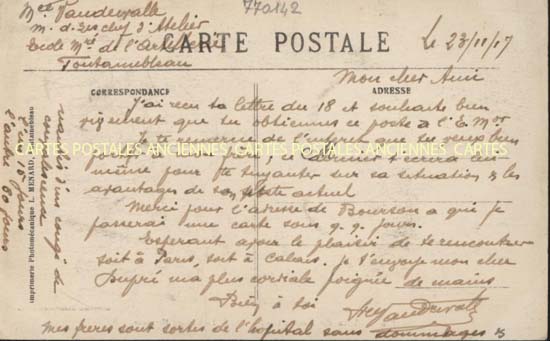 Mce Vandewalle
770142
M. d. es chef d'Atelier
Ecole Mre de l'Artillerie
Fontainebleau
CARTE POSTALE
Le 23/11/17
Mon cher Ami
CORRESPONDANCE
ADRESSE
J'ai reçu ta lettre du 18 et souhaite bien
que tu obtiennes ce poste à l'E. Mre
Je te remercie de l'interet que tu veux bien
porter à mon frère, ce dernier écrira lui
même pour te sur sa situation & les
avantages de son poste actuel
CARTES POSTALES ANCIENNES CARTES POSTALES ANCIENNES CARTES POSTALES ANCIENNES CARTES
Merci pour l'adresse de Bourson a qui je
passerai une carte sous q.q. jours.
Esperant avoir le plaisir de se rencontrer
soit à Paris, soit à Calais. je t'envoye mon cher
Dupré ma plus cordiale poignée de mains
Bien à toi
Vandewalle
Mes freres sont sortis de l'hopital sans dommages &
nantis d'un congé de
convalescence
l'un 15 jours
l'autre 60 jours
Imprimerie Photomécanique L. MENARD, Fontainebleau